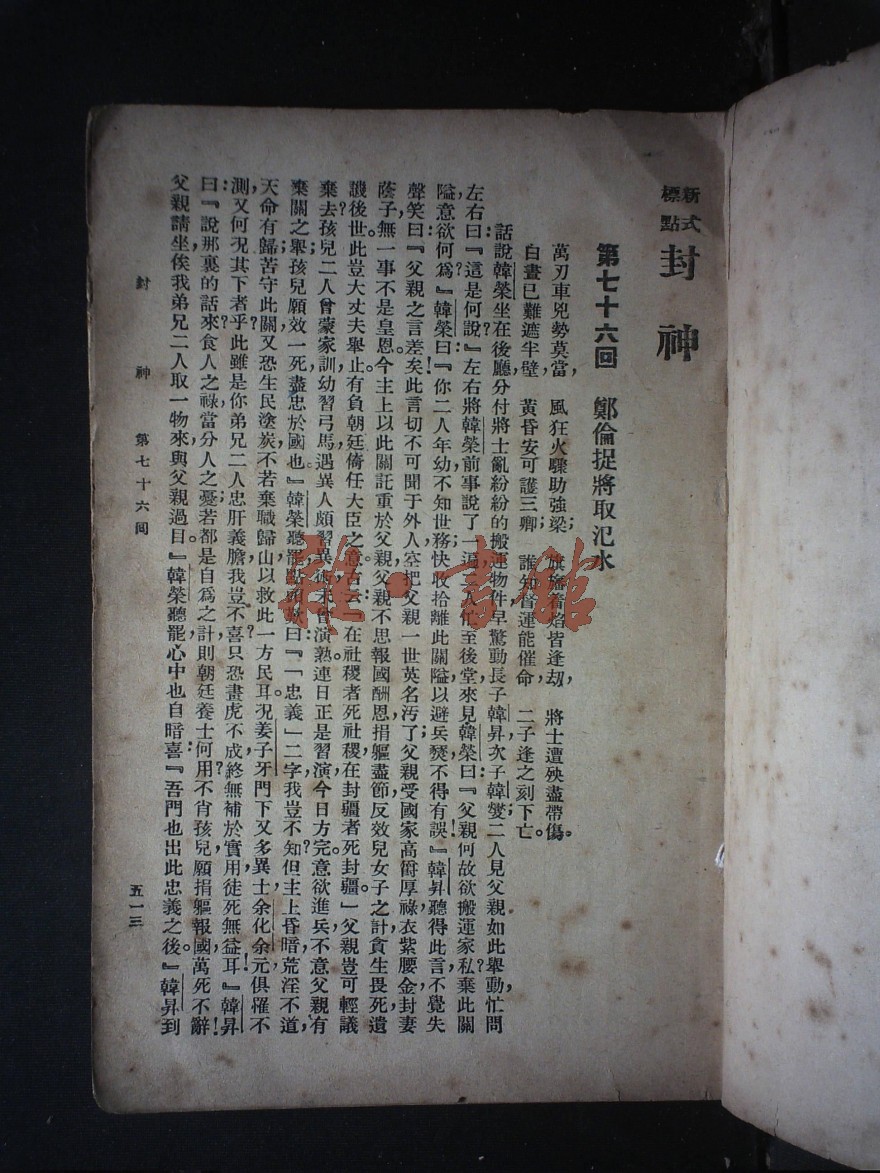 新式標點 封神
第七十六回 鄭倫捉將取汜水
萬刃車兇勢莫當，風狂火驟助強梁；旗旛着焰皆逢刧，將士遭殃盡帶傷。
白晝已難遮半壁，黃昏安可護三卿；誰知督運能催命，二子逢之刻下亡。
話說韓榮坐在後廳分付將士亂紛紛的搬運物件早驚動長子韓昇次子韓燮；二人見父親如此舉動，忙問
左右曰：『這是何說？』左右將韓榮前事說了一遍，二人忙至後堂來見韓榮曰：『父親何故欲搬運家私棄此關
隘，意欲何爲？』韓榮曰：『你二人年幼不知世務，快收拾離此關隘以避兵燹，不得有誤！』韓昇聽得此言，不覺失
聲笑曰：『父親之言差矣！此言切不可聞于外人，空把父親一世英名汚了；父親受國家高爵厚祿，衣紫腰金，封妻
蔭子，無一事不是皇恩。今主上以此關託重於父親，父親不思報國酬恩，捐軀盡節，反效兒女子之計，貪生畏死，遺
譏後世，此豈大丈夫舉止，有負朝廷倚任大臣之意？古云：「在社稷者死社稷，在封疆者死封疆。」父親豈可輕議
棄去？孩兒二人曾蒙家訓，幼習弓馬，遇異人，頗習異術，未曾演熟，連日正是習演，今日方完，意欲進兵，不意父親有
棄關之舉；孩兒願效一死盡忠於國也。』韓榮聽罷，點頭歎曰：『「忠義」二字我豈不知，但主上昏暗，荒淫不道，
天命有歸，苦守此關，又恐生民塗炭，不若棄職歸山，以救此一方民耳。况姜子牙門下又多異士，余化余元俱罹不
測，又何况其下者乎？此雖是你弟兄二人忠肝義膽，我豈不喜？只恐畫虎不成，終無補於實用，徒死無益耳！』韓昇
曰：『說那裏的話來？食人之祿，當分人之憂；若都是自爲之計，則朝廷養士何用？不肖孩兒願捐軀報國，萬死不辭！
父親請坐，俟我弟兄二人取一物來，與父親過目。』韓榮聽罷，心中也自暗喜：『吾門也出此忠義之後。』韓昇到
封神 第七十六囘 五一三